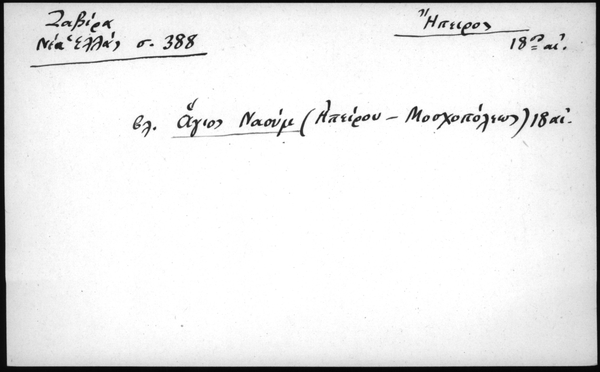 Ζαβίρα
Νέα Ἑλλάς σ. 388
Ἤπειρος
18ος αἰ.
βλ. Ἅγιος Ναούμ (Ἠπείρου – Μοσχοπόλεως) 18 αἰ.